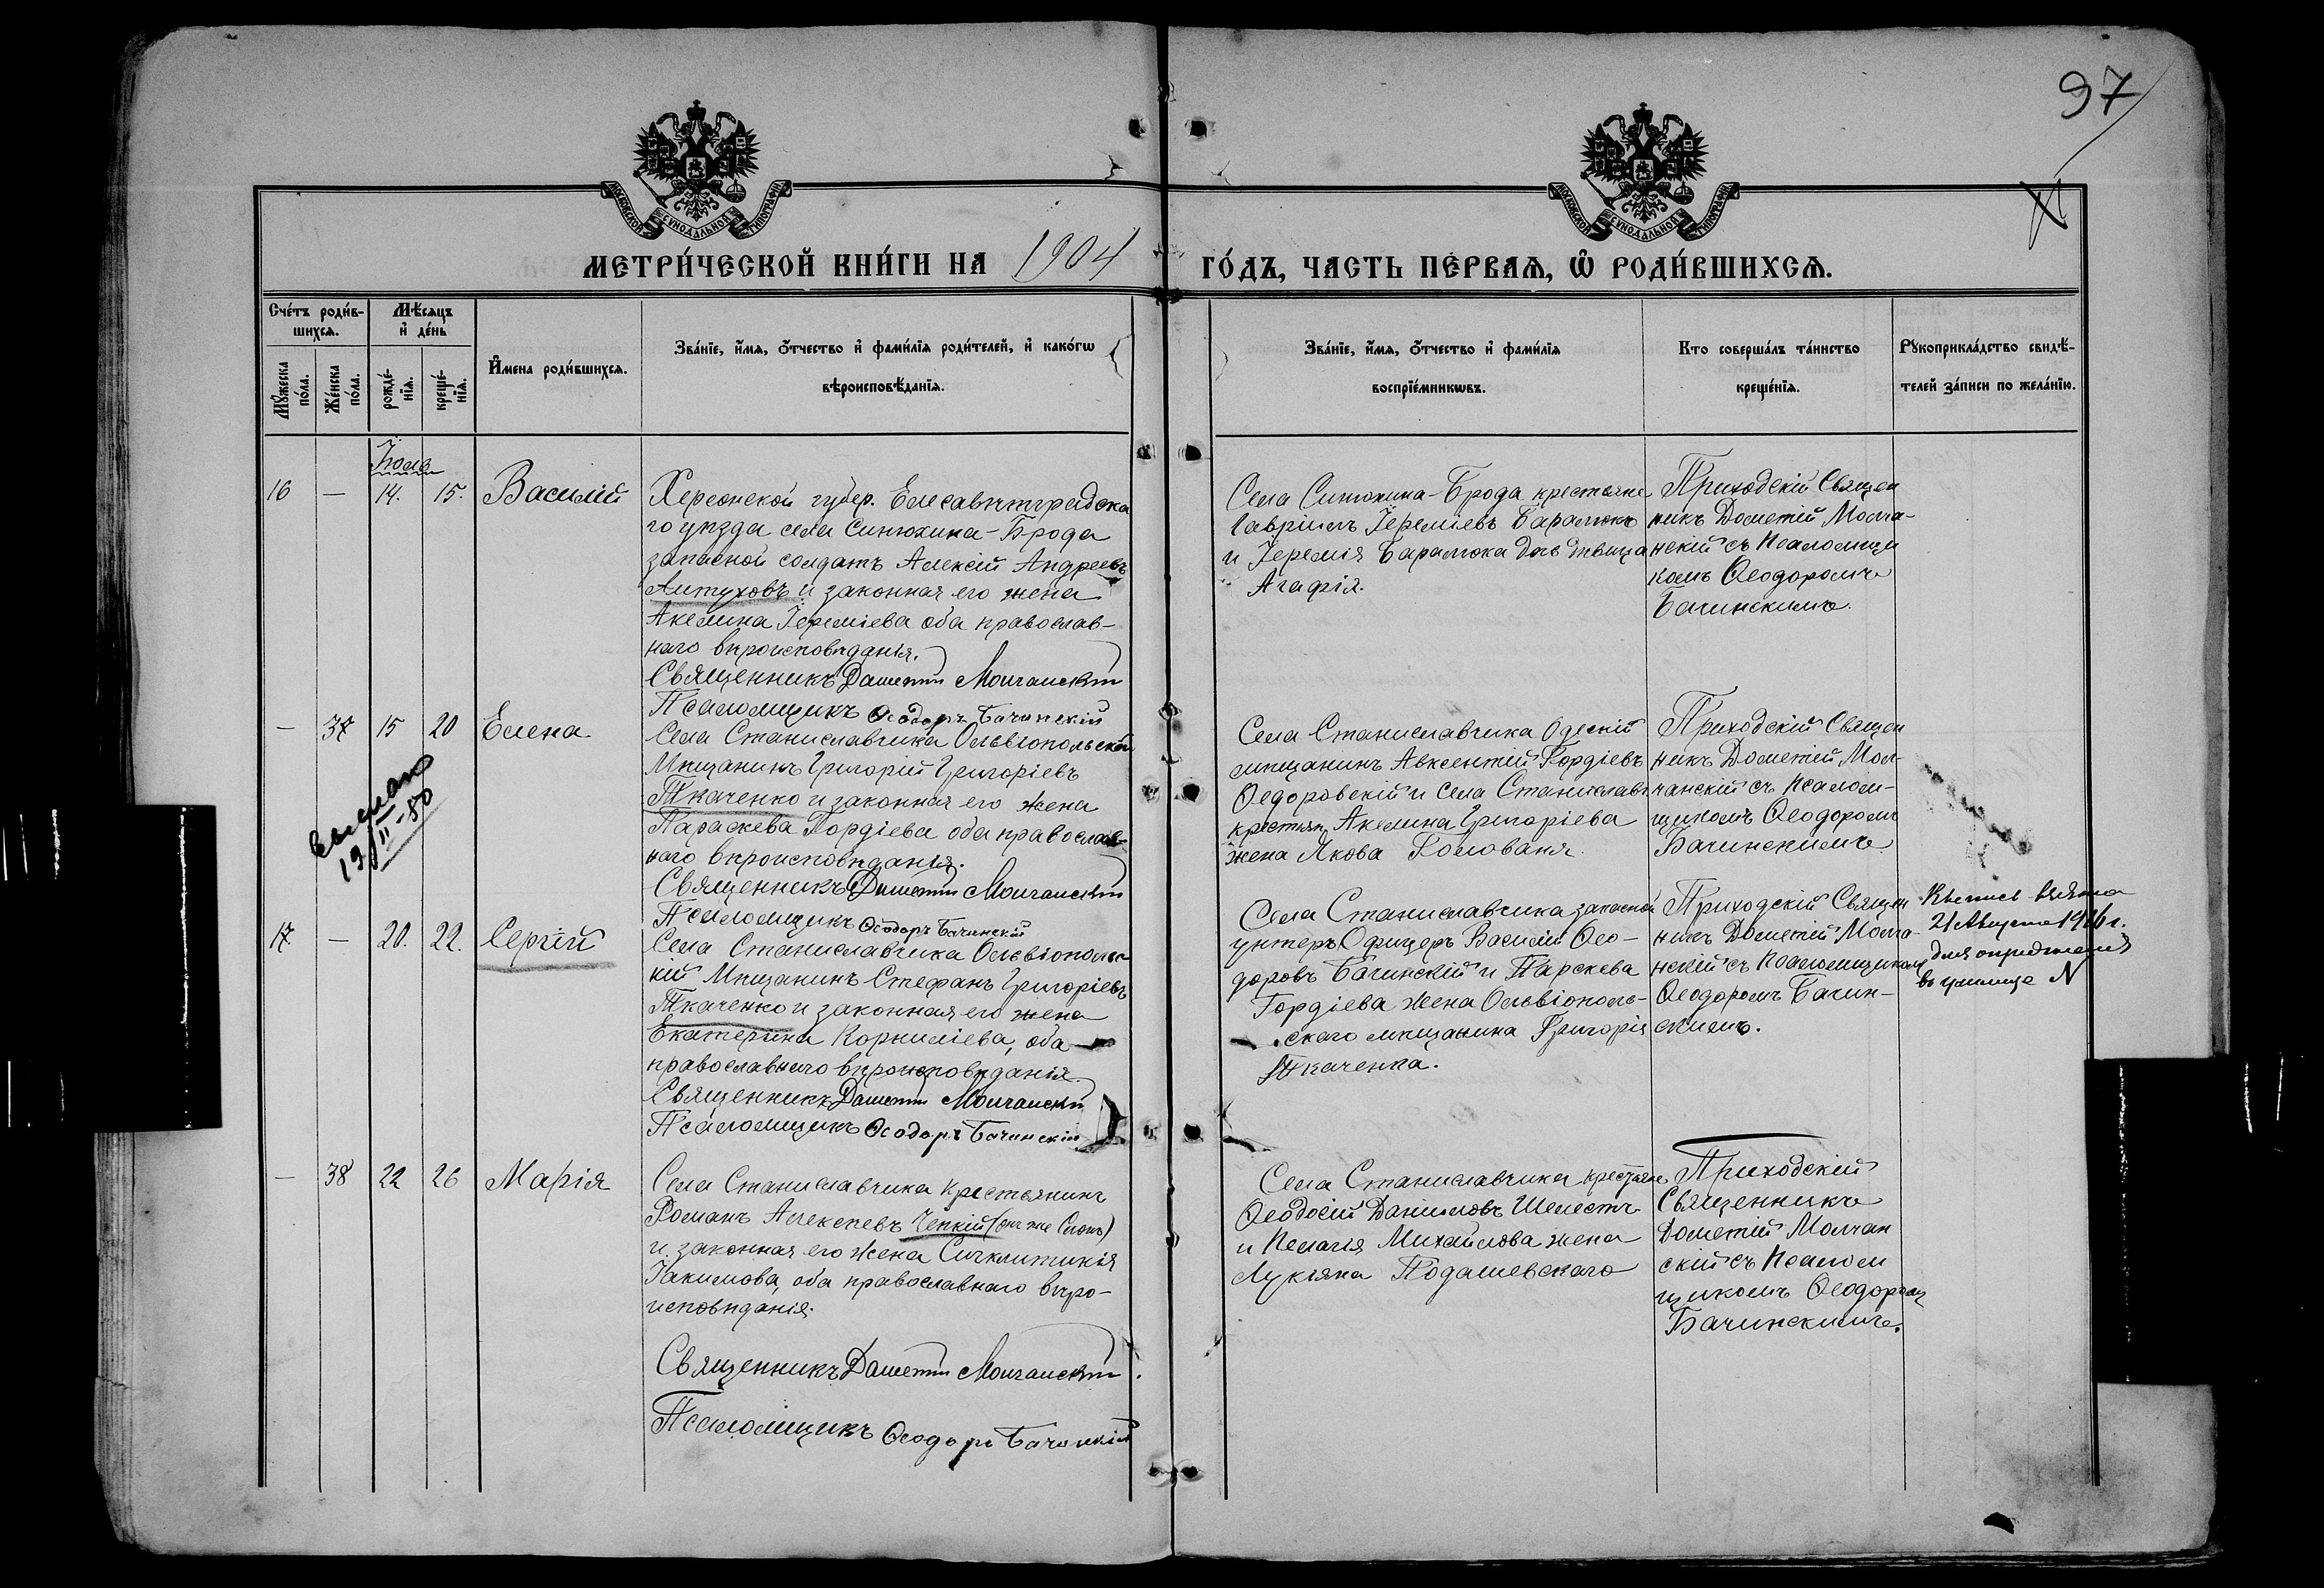 97
МОСКОВСКОЙ СУНОДАЛЬНОЙ ТИПОГРАФІИ
МОСКОВСКОЙ СУНОДАЛЬНОЙ ТИПОГРАФІИ
МЕТРИ́ЧЕСКОЙ КНИ́ГИ НА 1904 ГО́ДЪ, ЧАСТЬ ПЕ́РВАЯ, Ѡ РОДИ́ВШИХСЯ.
Сче́тъ роди́в-
шихся.
Мѣ́сяцъ
и де́нь
Имена роди́вшихся.
Зва́нїе, и́мя, ѻ́тчество и фами́лїя роди́телей, и како́гѡ
вѣроисповѣ́данїя.
Зва́нїе, и́мя, ѻ́тчество и фами́лїя
воспрїе́мникѡвъ.
Кто соверша́лъ та́инство
креще́нїя.
Рꙋкоприкла́дство свидѣ́-
телей за́писи по жела́нїю.
Мꙋ́жеска
по́ла.
Же́нска
по́ла.
рожде́-
нїя.
креще́-
нїя.
16 — 14. 15. Василій
Херсонской губер. Елесаветградска
го уѣзда села Синюхина-Брода
запасной солдатъ Алексій Андреевъ
и законная его жена
Акелина Іереміева оба православ-
наго вѣроисповѣданія.
Священникъ Дометій Молчанскій
Псаломщикъ Ѳеодоръ Бачинскій
Села Синюхина-Брода крестьяне
Гавріилъ Іереміевъ Баралюкъ
и Іеремія Баралюка дочь дѣвица
Агафія.
Приходскій Священ
никъ Дометій Молча-
нскій съ Псаломщи
комъ Ѳеодоромъ
Бачинскимъ.
— 37 15 20 Елена
19/II-50
Села Станиславчика Ольвіопольскій
Мѣщанинъ Григорій Григоріевъ
Ткаченко и законная его жена
Параскева Гордіева оба православ-
наго вѣроисповѣданія.
Священникъ Дометій Молчанскій
Псаломщикъ Ѳеодоръ Бачинскій
Села Станиславчика Одескій
мѣщанинъ Авксентій Гордіевъ
Ѳедоровскій и Села Станиславч
крестьян. Акелина Григоріева
жена Якова Голованя.
Приходскій Священ
никъ Дометій Мол-
чанскій съ Псалом-
щикомъ Ѳеодоромъ
Бачинскимъ.
17 — 20. 22. Сергій
Села Станиславчика Ольвіопольс-
кій Мѣщанинъ Стефанъ Григоріевъ
Ткаченко и законная его жена
Екатерина Корниліева, оба
православнаго вѣроисповѣданія.
Священникъ Дометій Молчанскій
Псаломщикъ Ѳеодоръ Бачинскій
Села Станиславчика запасной
унтеръ Офицеръ Василій Ѳео-
доровъ Бачинскій и Парскева
Гордіева жена Ольвіополь-
скаго мѣщанина Григорія
Ткаченка.
Приходскій Священ
никъ Дометій Молча-
нскій съ Псаломщикомъ
Ѳеодоромъ Бачин-
скимъ.
21 Августа 1916 г.
для опредѣленія
въ училище N
— 38 22 26 Марія
Села Станиславчика Крестьянинъ
Романъ Алексѣевъ Чепкій (онъ же)
и законная его жена Сигклитикія
Іакимова, оба православнаго вѣро-
исповѣданія.
Священникъ Дометій Молчанскій
Псаломщикъ Ѳеодоръ Бачинскій
Села Станиславчика крестьяне
Ѳеодосій Даніиловъ Шелестъ
и Пелагія Михайлова жена
Лукіяна Подашевскаго
Приходскій
Священникъ
Дометій Молчан
скій съ Псалом
щикомъ Ѳеодоромъ
Бачинскимъ.